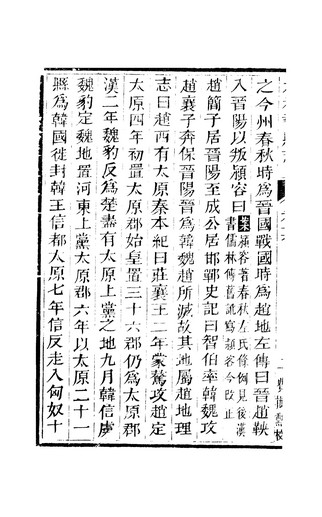 之今州春秋時為晉國戰國時為趙地左傳曰晉趙鞅
入晉陽以叛潁容曰案潁容著春秋左氏條例見後漢
書儒林傳舊訛寫頴容今改正
趙簡子居晉陽至成公居邯鄲史記曰智伯率韓魏攻
趙襄子奔保晉陽晉為韓魏趙所滅故其地屬趙地理
志曰趙西有太原秦本紀曰莊襄王二年蒙驁攻趙定
太原四年初置太原郡始皇置三十六郡仍為太原郡
漢二年魏豹反為楚盡有太原上黨之地九月韓信虜
魏豹定魏地置河東上黨太原郡六年以太原二十一
縣為韓國徙封韓王信都太原七年信反走入匈奴十